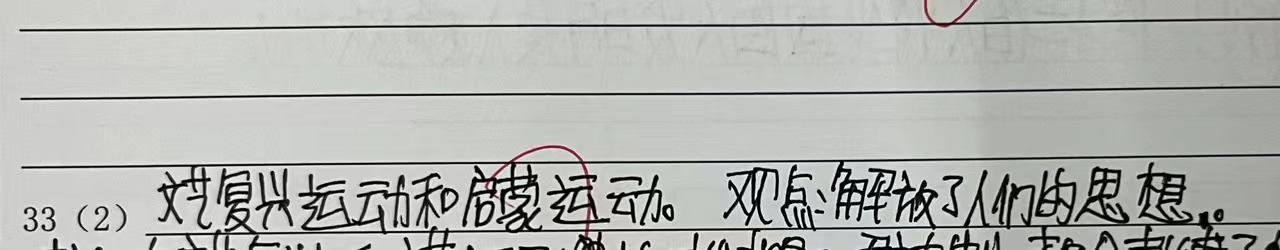 33（2）文艺复兴运动和启蒙运动。 观点：解放了人们的思想。